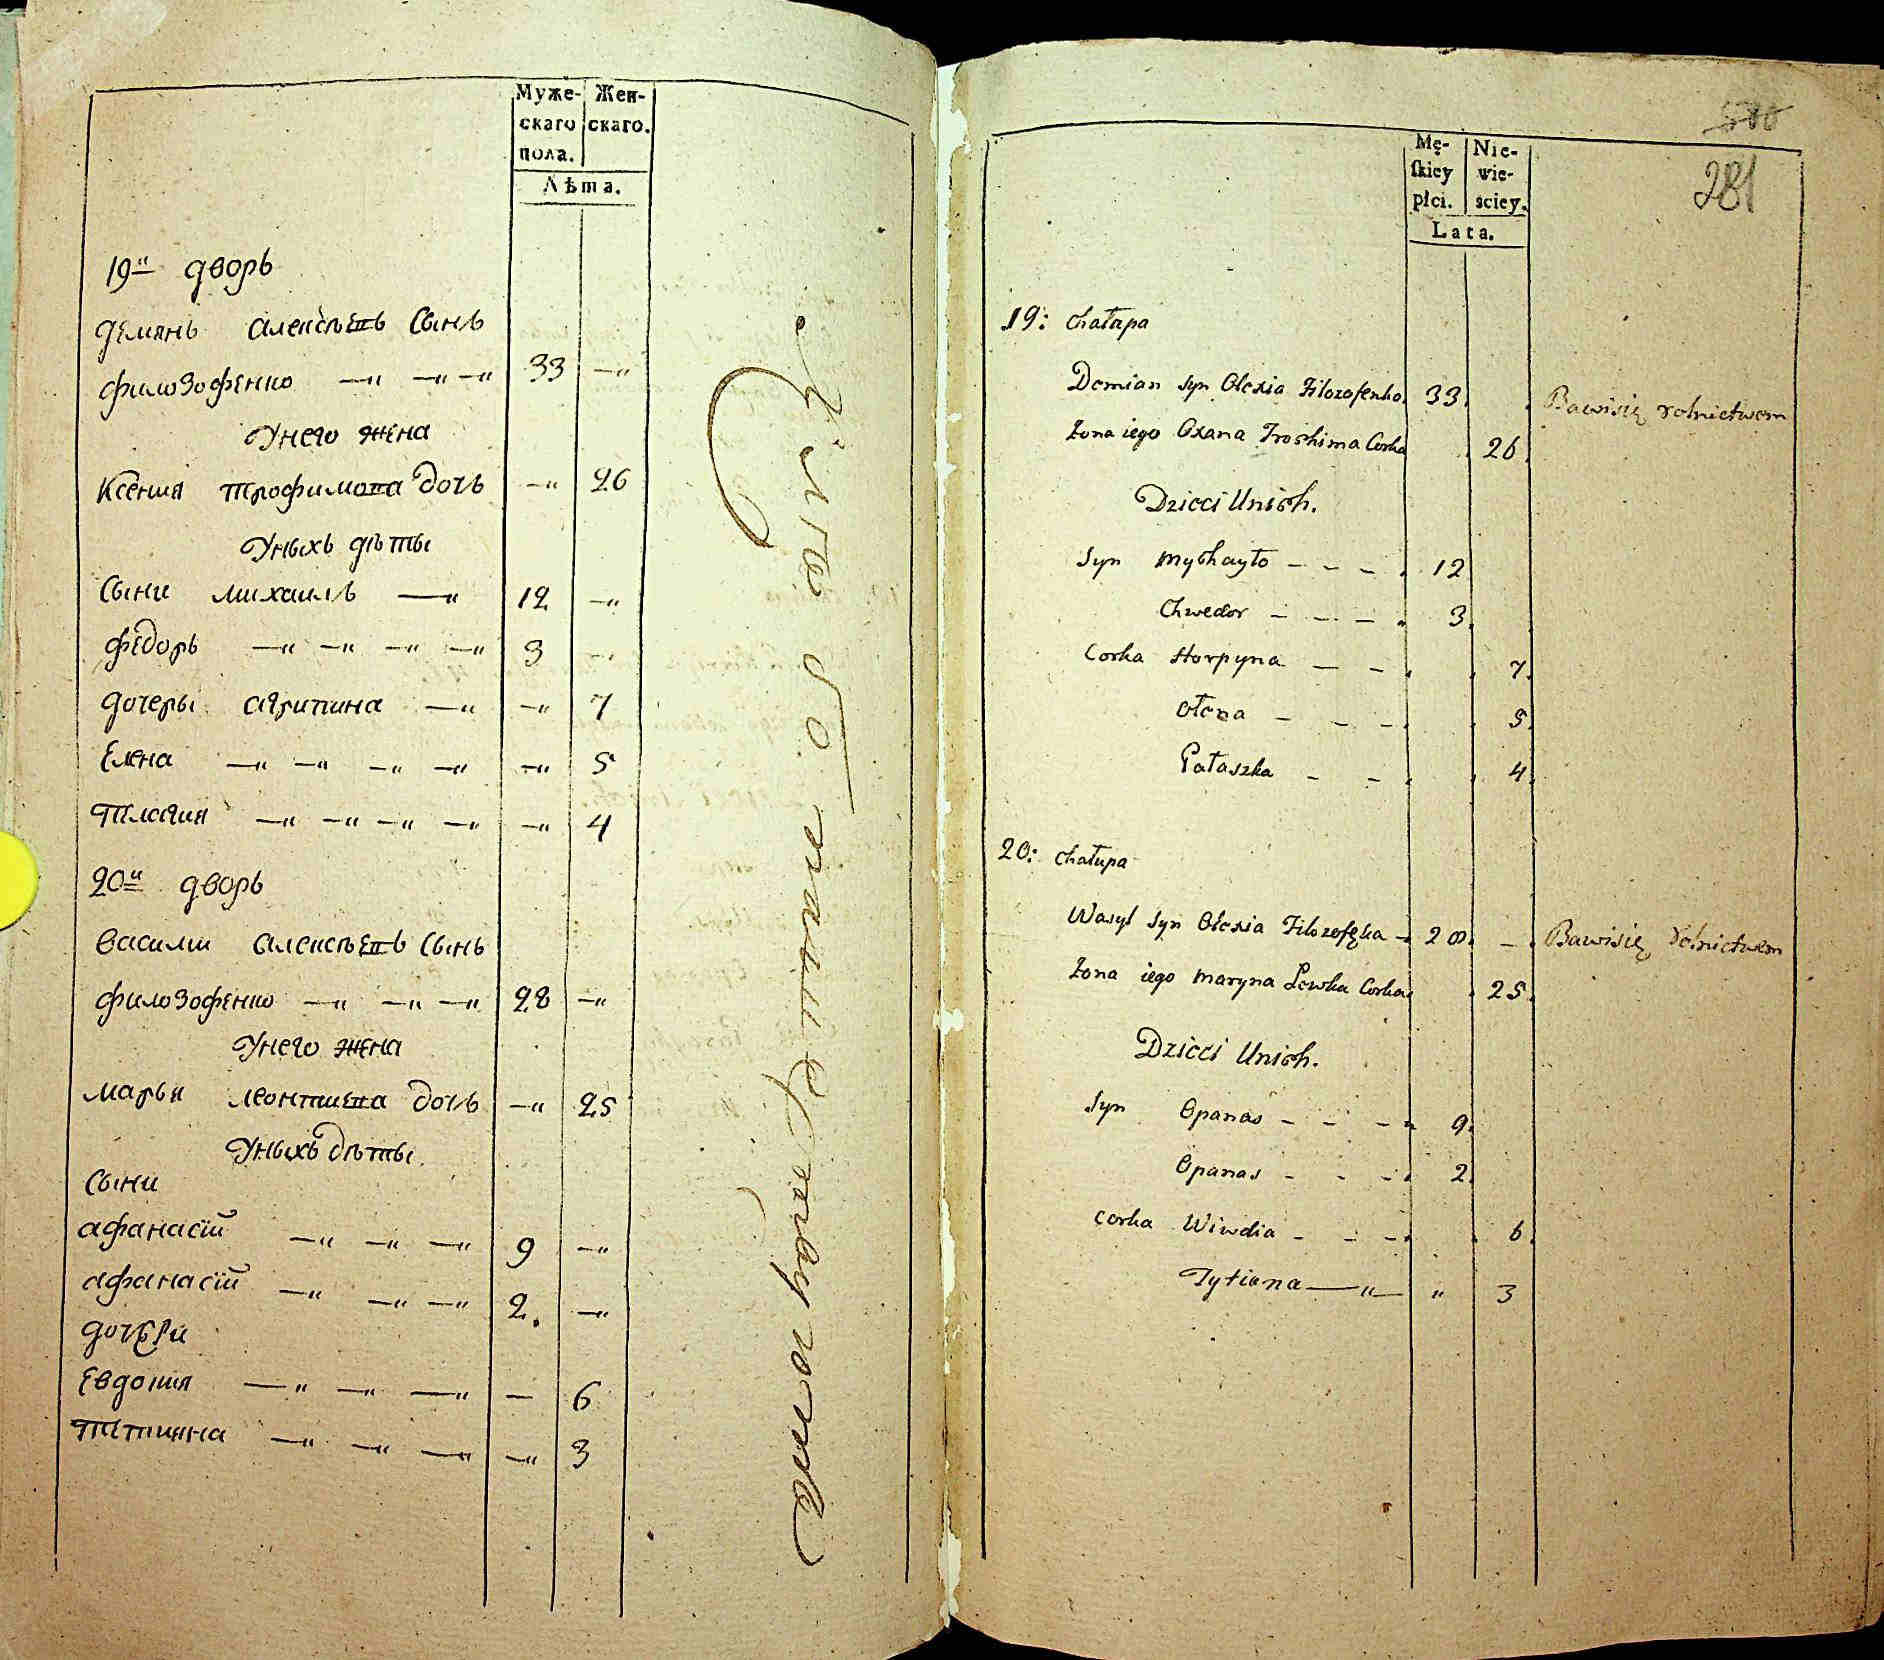 Муже- Жен-
скаго скаго.
пола.
Лѣта.
19й дворъ
Демянъ Алексѣевъ сынъ
Филозофенко —" —" —" 33 —"
У него жена
Ксения Трофимова дочь —" 26
У ныхъ дѣты
Сыни Михаилъ —" 12 —"
Федоръ —" —" —" —" 3 —"
Дочеры Агрипина —" —" 7
Елена —" —" —" —" —" 5
Пелагия —" —" —" —" —" 4
20й дворъ
Василий Алексѣевъ сынъ
Филозофенко —" —" —" 28 —"
У него жена
Марья Леонтиева дочь —" 25
У ныхъ дѣты
Сыни
Афанасий —" —" —" 9 —"
Афанасий —" —" —" 2. —"
Дочери
Евдокия —" —" —" — 6
Татияна —" —" —" —" 3
Mę- Nie-
skiey wie-
płci. sciey.
Lata.
281
19: chałupa
Demian syn Olexia Filozofenko 33. Bawi się rolnictwem
Żona iego Oxana Trochima Corka 26.
Dzieci Unich.
Syn Mychayło - - - 12
Chwedor - - - 3.
Corka Horpyna - - 7.
Ołena - - - 5.
Pałaszka - - 4.
20: chałupa
Wasyl syn Olexia Filozofęka - 28. - Bawi się rolnictwem
Żona iego Maryna Lewka Corka 25.
Dzieci Unich.
Syn Opanas - - - 9.
Opanas - - - 2.
Corka Wiwdia - - - 6.
Tytiana —"— " 3